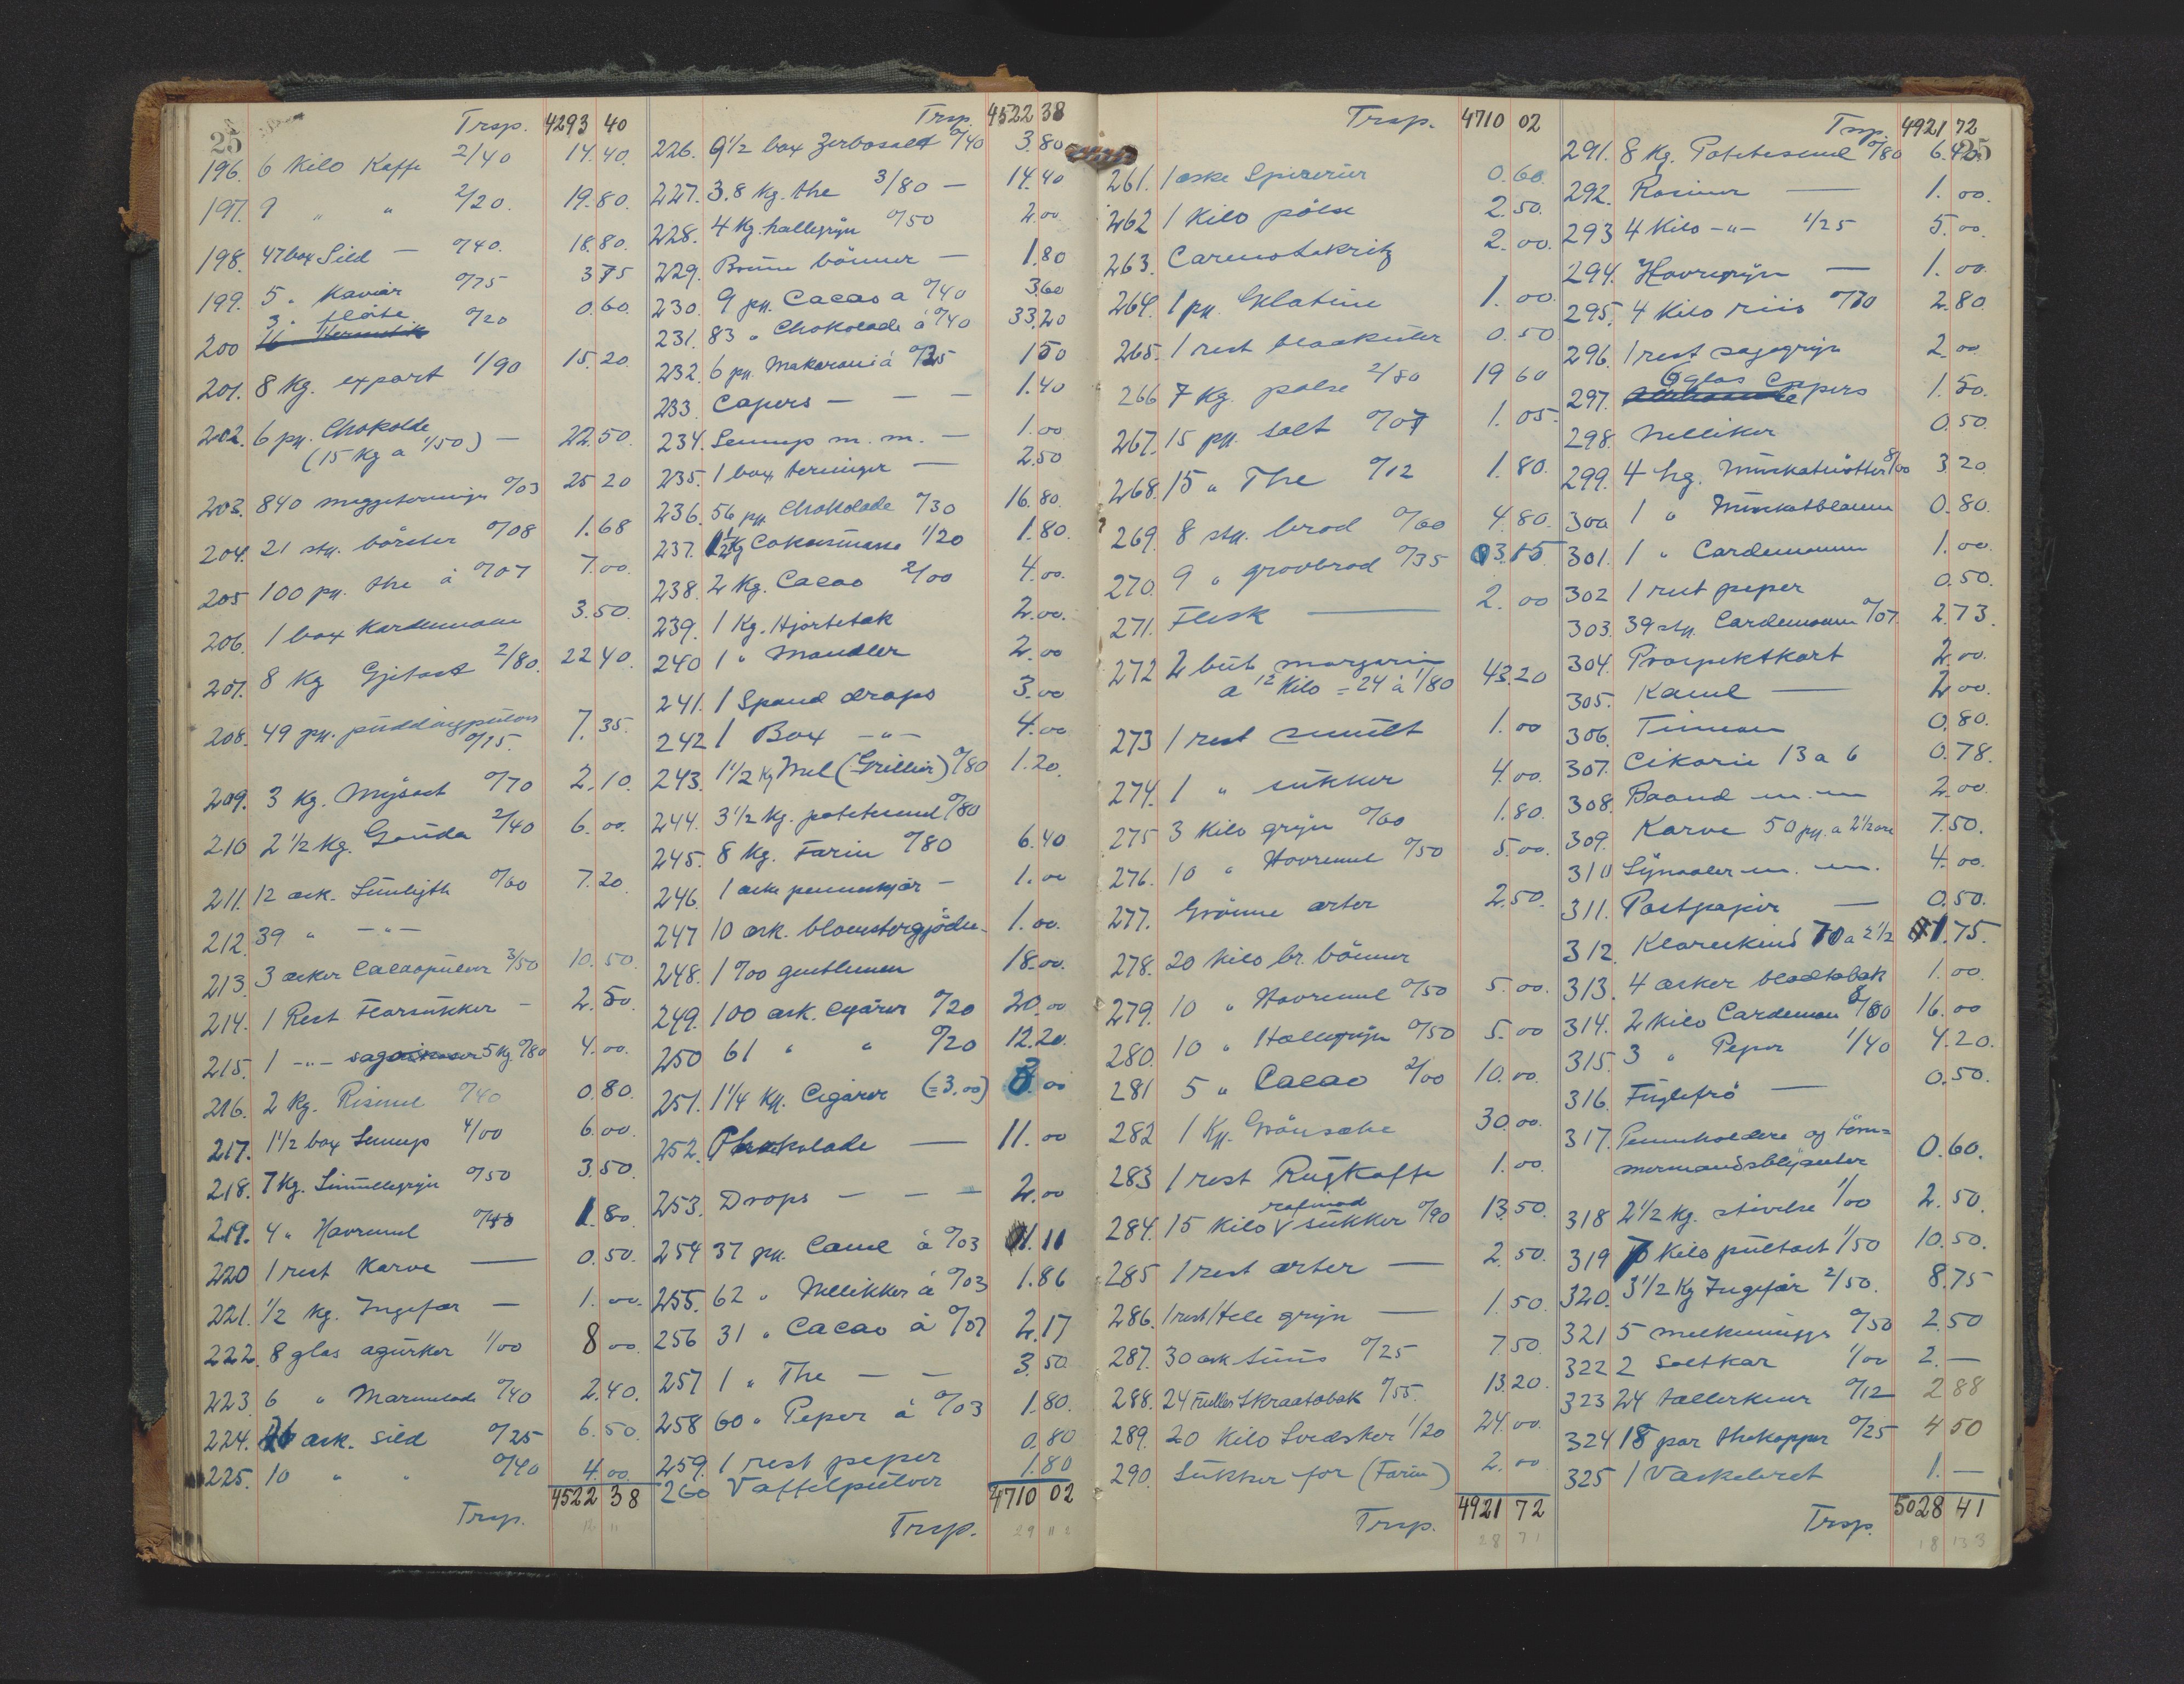 25
Trsp. 4293 40
196. 6 Kilo Kaffe 2/40 14.40.
197. 9 " " 2/20. 19.80.
198. 47 box Sild — 0/40. 18.80.
199. 5 " Kaviar 0/75 3 75
3 " fløte
200 0/20 0.60.
201. 8 Kg. export 1/90 15.20.
202. 6 pk. Chokolde
(15 Kg a 1/50) — 22.50.
203. 840 meggeterninger 0/03 25 20
204. 21 stk. börster 0/08 1.68
205 100 pk. the à 0/07 7.00.
206. 1 box Kardemome 3.50.
207. 8 Kg Gjetost 2/80. 22 40.
208. 49 pk. puddingpulver
0/15. 7.35
209. 3 Kg. Mysost 0/70 2.10
210 2 1/2 Kg. Gouda 2/40 6.00.
211. 12 ask. Sunligth 0/60 7.20.
212. 39 " —"—
213. 3 asker Cacaopulver 3/50 10.50.
214. 1 Rest Florsukker — 2.50.
215. 1 —"— 5 Kg 0/80 4.00.
216. 2 Kg. Rismel 0/40 0.80.
217. 1 1/2 box Sennep 4/00 6.00.
218. 7 Kg. Simullegryn 0/50 3.50.
219. 4 " Havremel 1.80.
220 1 rest Karve — 0.50.
221. 1/2 Kg. Ingefær — 1.00.
222. 8 glas agurker 1/00 8 00.
223 6 " Marmelade 0/40 2.40.
224. 26 ask. Sild 0/25 6.50.
225. 10 " " 0/40 4.00.
Trsp. 4522 38
Trsp. 4522 38
226. 9 1/2 box Zerbosalt 0/40 3.80
227. 3.8 Kg. the 3/80 — 14.40
228. 4 Kg. hallegryn 0/50 2.00
229. Brune bönner — 1.80
230. 9 pk. Cacao a 0/40 3.60
231. 83 " Chokolade à 0/40 33.20
232. 6 pk. Makaroni à 0/25 1 50
233. Capers — — — 1.40
234. Sennep m. m. — 1.00
235. 1 box terninger — 2.50
236. 56 pk Chokolade 0/30 16.80.
237. 1 1/2 Kg Cokusmasse 1/20 1.80.
238. 2 Kg. Cacao 2/00 4.00.
239. 1 Kg. Hjortetak 2.00.
240 1 " Mandler 2.00
241. 1 Spand drops 3.00
242 1 Box —"— 4.00
243. 1 1/2 Kg Mel (Grillier) 0/80 1.20.
244. 3 1/2 Kg. potetesmel 0/80
245. 8 Kg. Farin 0/80 6.40
246. 1 aske penneskjær — 1.00
247 10 ask. blomstergjödn. 1.00.
248. 1 0/00 gentlemen 18.00.
249. 100 ask. Cgarer 0/20 20.00
250 61 " " 0/20 12.20.
251. 1 1/4 Kk. Cigarer (= 3.00) 3.00
252. Chokolade — 11.00
253. Drops — — — 2.00
254 37 pk. Canel à 0/03 1.11
255. 62 " Nellikker à 0/03 1.86
256 31 " Cacao à 0/07 2.17
257 1 " The — — 3.50
258 60 " Peper à 0/03 1.80.
259. 1 rest peper 0.80
260 Vaffelpulver 1.80
Trsp. 4710 02
29 11 2
Trsp. 4710 02
261. 1 aske Spirerur 0.60.
262 1 Kilo pölse 2.50.
263. Carenolakritz 2.00.
264. 1 pk. Gelatine 1.00.
265. 1 rest blaakulter 0.50
266 7 Kg. pølse 2/80 19 60
267. 15 pk. salt 0/07 1.05.
268. 15 " The 0/12 1.80.
269. 8 stk. brod 0/60 4.80.
270. 9 " grovbrod 0/35 3.15
271. Flesk — 2.00
272 2 butt margarin
a 12 Kilo = 24 à 1/80 43.20
273 1 rest smult 1.00
274. 1 " sukker 4.00.
275 3 Kilo gryn 0/60 1.80.
276. 10 " Havremel 0/50 5.00.
277. Grönne erter 2.50.
278. 20 Kilo br. bönner
279. 10 " Havremel 0/50 5.00.
280. 10 " Hallegryn 0/50 5.00
281 5 " Cacao 2/00 10.00.
282 1 Kk. Grönsake 30.00.
283 1 rest Rugkaffe 1.00.
rafinad
284. 15 Kilo V sukker 0/90 13.50.
285 1 rest erter — 2.50.
286. 1 rest Hele gryn — 1.50.
287. 30 ask Snus 0/25 7.50.
288. 24 ruller Skraatobak 0/55. 13.20.
289. 20 Kilo Svedsker 1/20 24.00.
290. Sukker for (Farin) 2.00
Trsp. 4921 72
28 71
25
Trsp. 4921 72
291. 8 Kg. Potetesmel 0/80 6.40.
292. Rosiner — 1.00.
293 4 Kilo —"— 1/25 5.00.
294. Havregryn — 1.00.
295. 4 Kilo riis 0/70 2.80.
296. 1 rest sagogryn 2.00
6 glas Cappers
297. 1.50.
298. Nelliker 0.50.
299. 4 hg. Muskatnötter 8/00 3.20.
300 1 " Muskatblomm 0.80.
301. 1 " Cardemomm 1.00.
302 1 rest peper 0.50.
303. 39 stk. Cardemomm 0/07 2.73.
304. Prospektkort 2.00.
305. Kanel — 2.00.
306. Timean 0.80.
307. Cikorie 13 a 6 0.78.
308. Baand m. m 2.00.
309. Karve 50 pk. a 2 1/2 øre 7.50.
310 Synaaler m. m. 4.00.
311. Postpapir — 0.50.
312. Klareskind 70 a 2 1/2 1.75.
313. 4 asker bladtobak 1.00.
314. 2 Kilo Cardemom 8/00 16.00
315. 3 " Peper 1/40 4.20.
316. Fuglefrö — 0.50.
317. Penneholdere og töm=
mermandsblyanter 0.60.
318 2 1/2 Kg. stivelse 1/00 2.50.
319 7 Kilo pultost 1/50 10.50.
320. 3 1/2 Kg Ingefær 2/50. 8.75
321 5 melkemugger 0/50 2.50
322 2 Saltkar 1/00 2.—
323 24 tallerkner 0/12 2 88
324 18 par thekopper 0/25 4 50
325 1 Vaskebret 1.—
Trsp. 5028 41
18 133